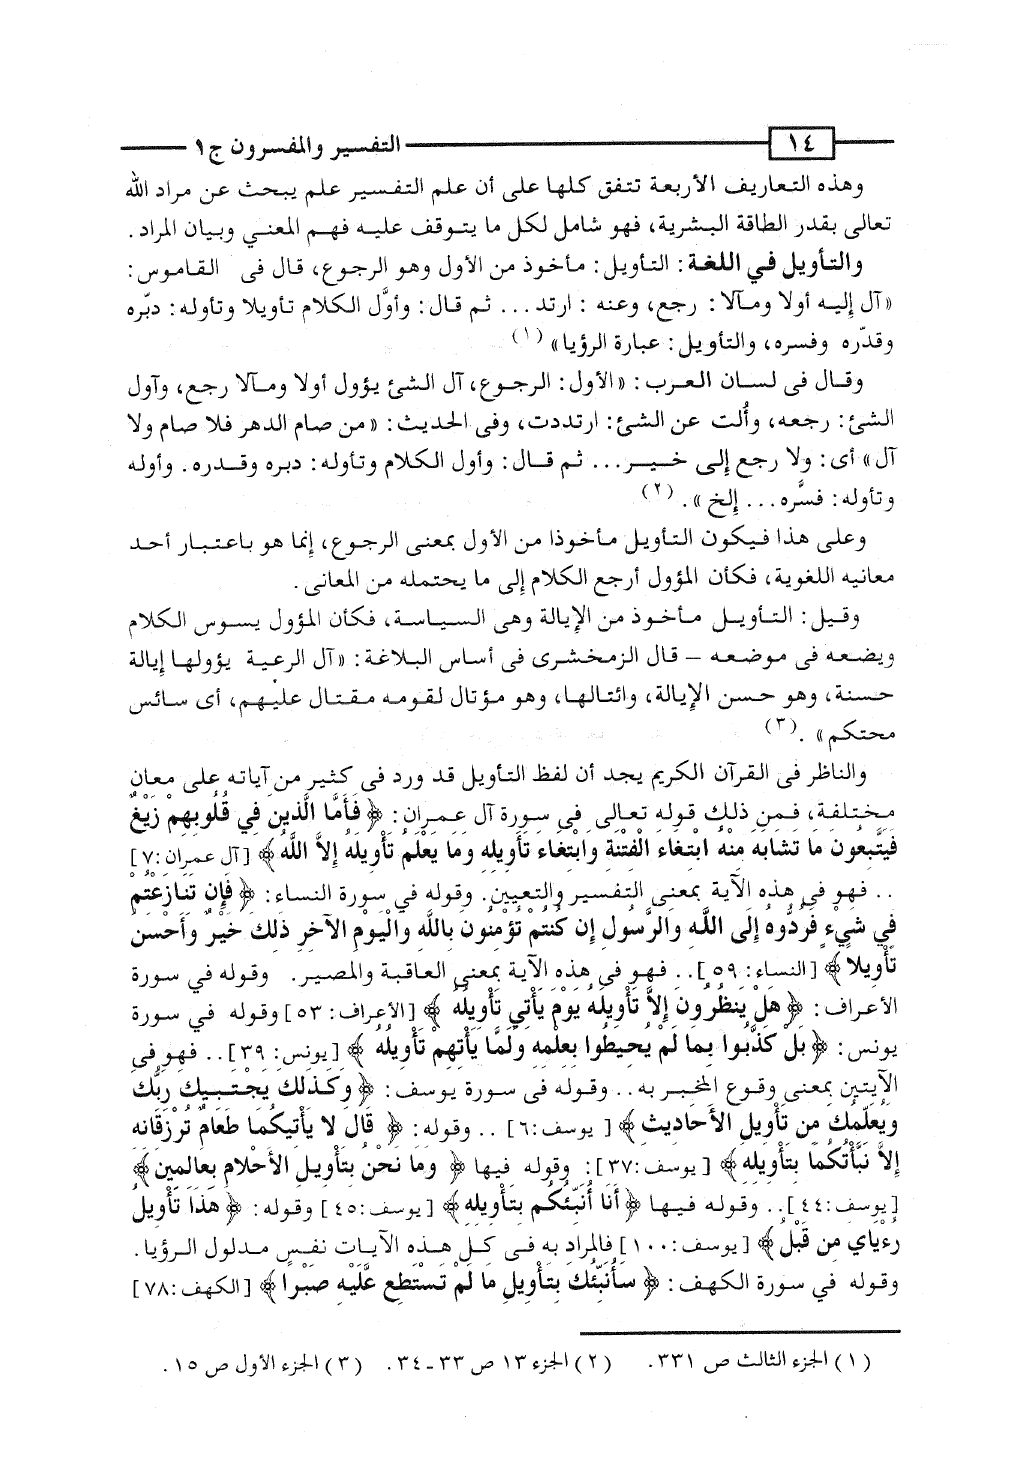 ١٤ التفسير والمفسرون ج١
وهذه التعاريف الأربعة تتفق كلها على أن علم التفسير علم يبحث عن مراد الله
تعالى بقدر الطاقة البشرية، فهو شامل لكل ما يتوقف عليه فهم المعني وبيان المراد.
والتأويل في اللغة: التأويل: مأخوذ من الأول وهو الرجوع، قال فى القاموس:
«آل إليه أولا ومآلا: رجع، وعنه: ارتد... ثم قال: وأوَّل الكلام تأويلا وتأوله: دبّره
وقدّره وفسره، والتأويل: عبارة الرؤيا» (١)
وقال فى لسان العرب: «الأول: الرجوع، آل الشئ يؤول أولا ومآلا رجع، وآول
الشئ: رجعه، وأُلت عن الشئ: ارتددت، وفى الحديث: «من صام الدهر فلا صام ولا
آل» أى: ولا رجع إلى خير... ثم قال: وأول الكلام وتأوله: دبره وقدره. وأوله
وتأوله: فسَّره... إلخ». (٢)
وعلى هذا فيكون التأويل مأخوذا من الأول بمعنى الرجوع، إنما هو باعتبار أحد
معانيه اللغوية، فكأن المؤول أرجع الكلام إلى ما يحتمله من المعانى.
وقيل: التأويل مأخوذ من الإيالة وهى السياسة، فكأن المؤول يسوس الكلام
ويضعه فى موضعه – قال الزمخشرى فى أساس البلاغة: «آل الرعية يؤولها إيالة
حسنة، وهو حسن الإيالة، وائتالها، وهو مؤتال لقومه مقتال عليهم، أى سائس
محتكم». (٣)
والناظر فى القرآن الكريم يجد أن لفظ التأويل قد ورد فى كثير من آياته على معان
مختلفة، فمن ذلك قوله تعالى فى سورة آل عمران: ﴿فَأَمَّا الَّذِينَ فِي قُلُوبِهِمْ زَيْغٌ
فَيَتَّبِعُونَ مَا تَشَابَهَ مِنْهُ ابْتِغَاءَ الْفِتْنَةِ وَابْتِغَاءَ تَأْوِيلِهِ وَمَا يَعْلَمُ تَأْوِيلَهُ إِلاَّ اللَّهُ﴾ [آل عمران:٧]
.. فهو فى هذه الآية بمعنى التفسير والتعيين. وقوله في سورة النساء: ﴿فَإِن تَنَازَعْتُمْ
فِي شَيْءٍ فَرُدُّوهُ إِلَى اللَّهِ وَالرَّسُولِ إِن كُنتُمْ تُؤْمِنُونَ بِاللَّهِ وَالْيَوْمِ الآخِرِ ذَلِكَ خَيْرٌ وَأَحْسَنُ
تَأْوِيلا﴾ [النساء: ٥٩].. فهو فى هذه الآية بمعنى العاقبة والمصير. وقوله في سورة
الأعراف: ﴿هَلْ يَنظُرُونَ إِلاَّ تَأْوِيلَهُ يَوْمَ يَأْتِي تَأْوِيلُهُ﴾ [الأعراف: ٥٣] وقوله في سورة
يونس: ﴿بَلْ كَذَّبُوا بِمَا لَمْ يُحِيطُوا بِعِلْمِهِ وَلَمَّا يَأْتِهِمْ تَأْوِيلُهُ﴾ [يونس: ٣٩].. فهو فى
الآيتين بمعنى وقوع المخبر به.. وقوله فى سورة يوسف: ﴿وَكَذَلِكَ يَجْتَبِيكَ رَبُّكَ
وَيُعَلِّمُكَ مِن تَأْوِيلِ الأَحَادِيثِ﴾ [يوسف:٦] .. وقوله: ﴿قَالَ لا يَأْتِيكُمَا طَعَامٌ تُرْزَقَانِهِ
إِلاَّ نَبَّأْتُكُمَا بِتَأْوِيلِهِ﴾ [يوسف:٣٧]: وقوله فيها ﴿وَمَا نَحْنُ بِتَأْوِيلِ الأَحْلامِ بِعَالِمِينَ﴾
[يوسف:٤٤].. وقوله فيها ﴿أَنَا أُنَبِّئُكُم بِتَأْوِيلِهِ﴾ [يوسف:٤٥] وقوله: ﴿هَذَا تَأْوِيلُ
رُءْيَايَ مِن قَبْلُ﴾ [يوسف:١٠٠] فالمراد به فى كل هذه الآيات نفس مدلول الرؤيا.
وقوله في سورة الكهف: ﴿سَأُنَبِّئُكَ بِتَأْوِيلِ مَا لَمْ تَسْتَطِع عَّلَيْهِ صَبْرًا﴾ [الكهف:٧٨]
(١) الجزء الثالث ص ٣٣١. (٢) الجزء ١٣ ص ٣٣-٣٤. (٣) الجزء الأول ص ١٥.